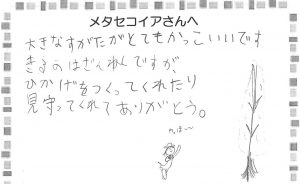 メタセコイアさんへ
大きなすがたがとてもかっこいいです
きるのはざんねんですが、
ひかげをつくってくれたり
見守ってくれてありがとう。